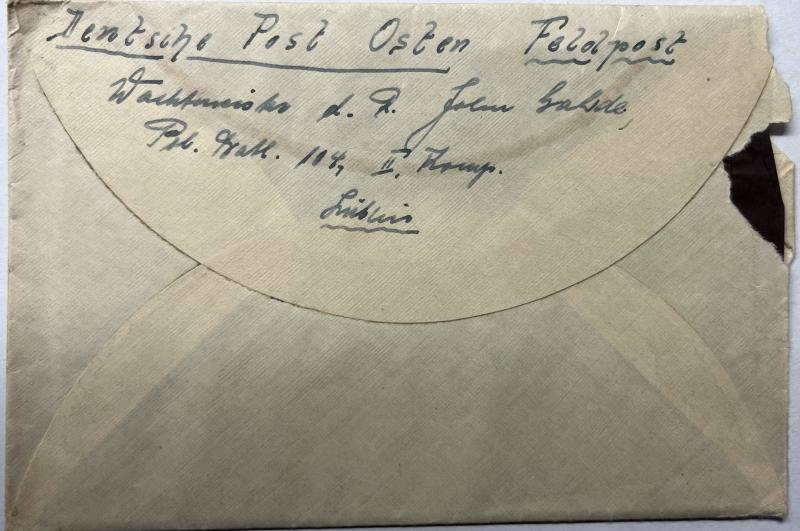 Deutsche Post Osten Feldpost
Wachtmeister d. R. John
Pol. Batl. 104, II. Komp.
Lublin